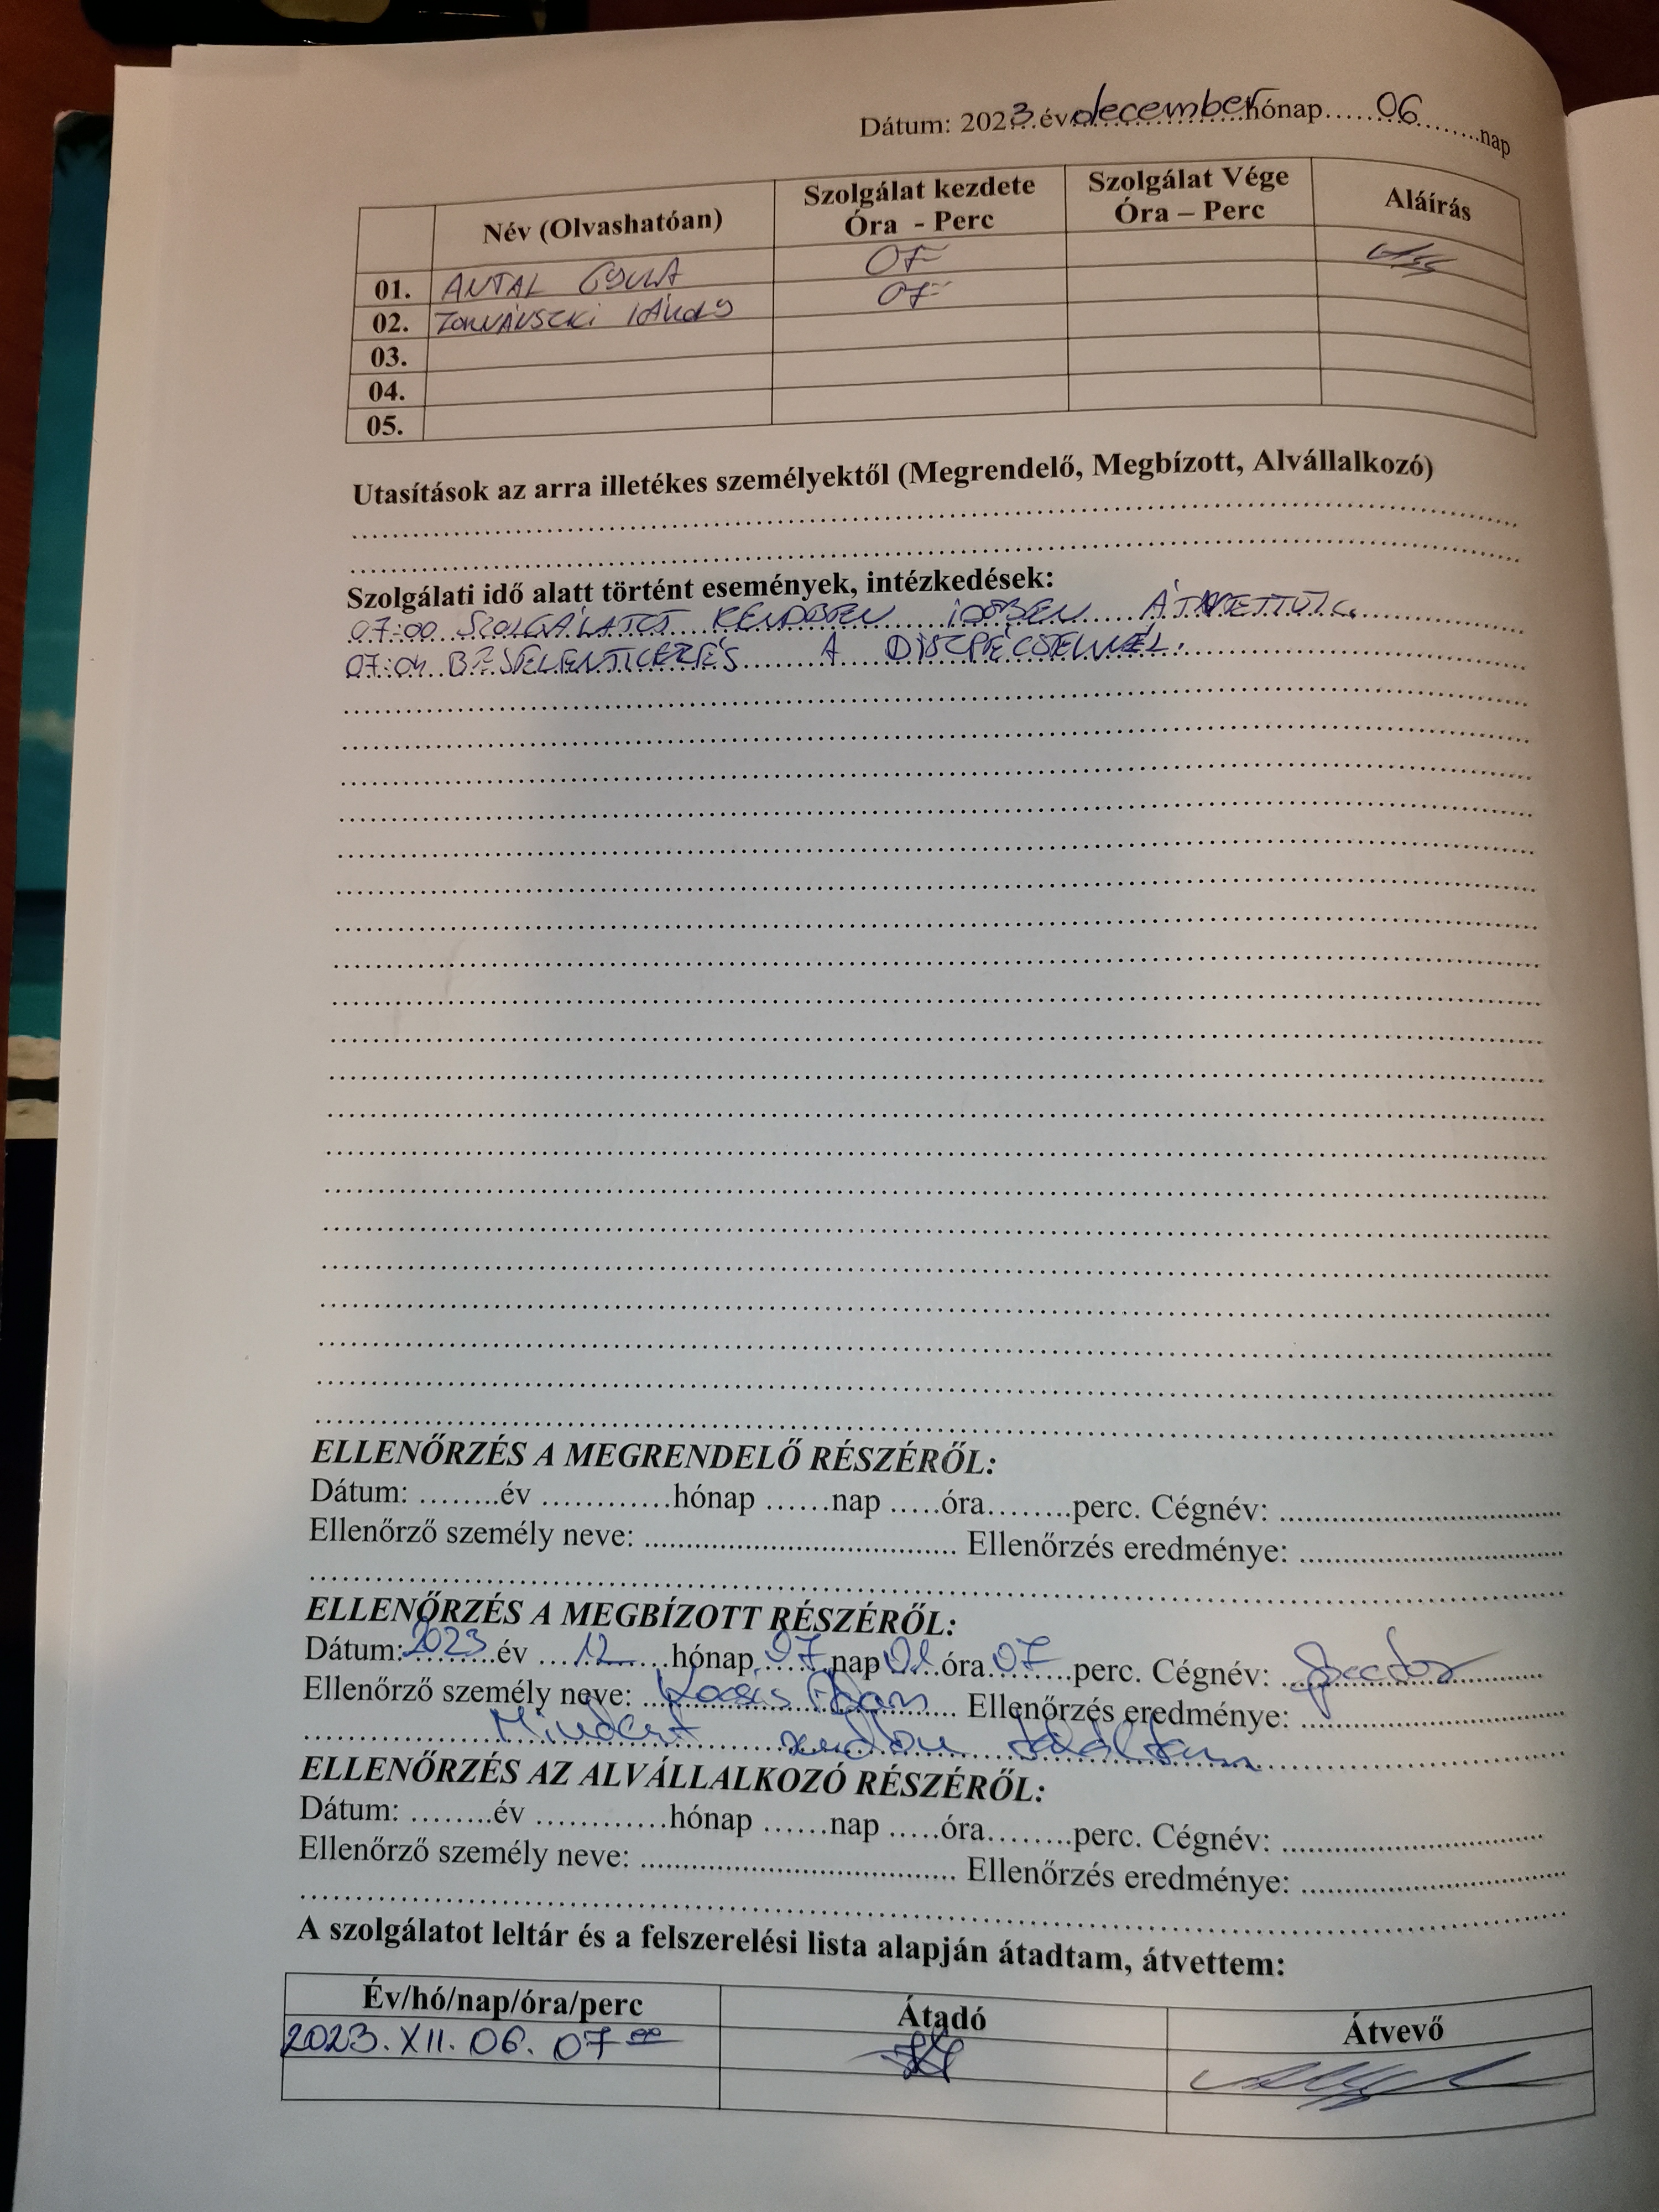 Dátum: 2023 év december hónap 06 nap
Név (Olvashatóan) Szolgálat kezdete Óra - Perc Szolgálat Vége Óra – Perc Aláírás
01. ANTAL GYULA 07
02. JÁNOS 07
03.
04.
05.
Utasítások az arra illetékes személyektől (Megrendelő, Megbízott, Alvállalkozó)
Szolgálati idő alatt történt események, intézkedések:
07:00 SZOLGÁLATOT RENDBEN IDŐBEN ÁTVETTÜK.
07:04 BEJELENTKEZÉS A DISZPÉCSERNÉL.
ELLENŐRZÉS A MEGRENDELŐ RÉSZÉRŐL:
Dátum: ........év ............hónap ......nap .....óra........perc. Cégnév: ................
Ellenőrző személy neve: ................ Ellenőrzés eredménye: ................
ELLENŐRZÉS A MEGBÍZOTT RÉSZÉRŐL:
Dátum: 2023 év 12 hónap 07 nap 01 óra 07 perc. Cégnév:
Ellenőrző személy neve: Kocsis Ellenőrzés eredménye:
Mindent rendben találtam
ELLENŐRZÉS AZ ALVÁLLALKOZÓ RÉSZÉRŐL:
Dátum: ........év ............hónap ......nap .....óra........perc. Cégnév: ................
Ellenőrző személy neve: ................ Ellenőrzés eredménye: ................
A szolgálatot leltár és a felszerelési lista alapján átadtam, átvettem:
Év/hó/nap/óra/perc Átadó Átvevő
2023. XII. 06. 07 00